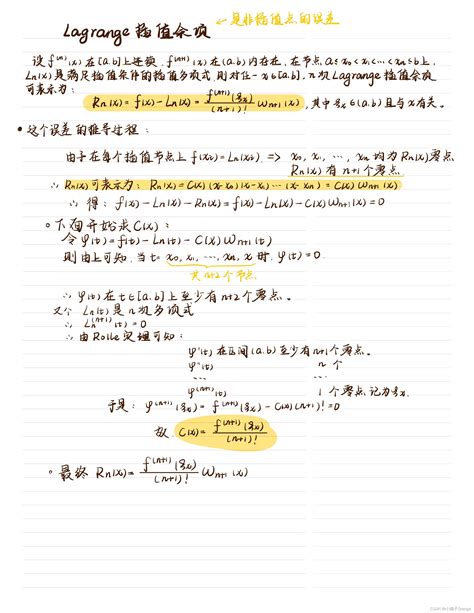 Lagrange插值余项 ← 是非插值点的误差
设 f⁽ⁿ⁾(x) 在[a,b]上连续, f⁽ⁿ⁺¹⁾(x) 在(a,b)内存在, 在节点 a≤x₀<x₁<…<xₙ≤b上,
Lₙ(x)是满足插值条件的插值多项式, 则对任一x∈[a,b], n次Lagrange插值余项
可表示为: Rₙ(x) = f(x) - Lₙ(x) = f⁽ⁿ⁺¹⁾(ξₓ)/(n+1)! ωₙ₊₁(x), 其中ξₓ∈(a,b)且与x有关。
• 这个误差的推导过程:
由于在每个插值节点上 f(xᵢ) = Lₙ(xᵢ), => x₀, x₁, …, xₙ 均为Rₙ(x)零点
Rₙ(x)有n+1个零点
∴ Rₙ(x)可表示为: Rₙ(x) = C(x)(x-x₀)(x-x₁)…(x-xₙ) = C(x)ωₙ₊₁(x)
∴ 得: f(x) - Lₙ(x) - Rₙ(x) = f(x) - Lₙ(x) - C(x)ωₙ₊₁(x) = 0
∘ 下面开始求C(x):
令 φ(t) = f(t) - Lₙ(t) - C(x)ωₙ₊₁(t)
则由上可知, 当t = x₀, x₁, …, xₙ, x 时, φ(t) = 0.
共n+2个节点
∴ φ(t)在t∈[a,b]上至少有n+2个零点。
又∵ Lₙ(t)是n次多项式
∴ Lₙ⁽ⁿ⁺¹⁾(t) = 0
∴ 由Rolle定理可知:
φ'(t) 在区间(a,b)至少有n+1个零点。
φ''(t) n 个
… …
φ⁽ⁿ⁺¹⁾(t) 1 个零点, 记为ξₓ
于是: φ⁽ⁿ⁺¹⁾(ξₓ) = f⁽ⁿ⁺¹⁾(ξₓ) - C(x)(n+1)! = 0
故 C(x) = f⁽ⁿ⁺¹⁾(ξₓ)/(n+1)!
∘ 最终 Rₙ(x) = f⁽ⁿ⁺¹⁾(ξₓ)/(n+1)! ωₙ₊₁(x)